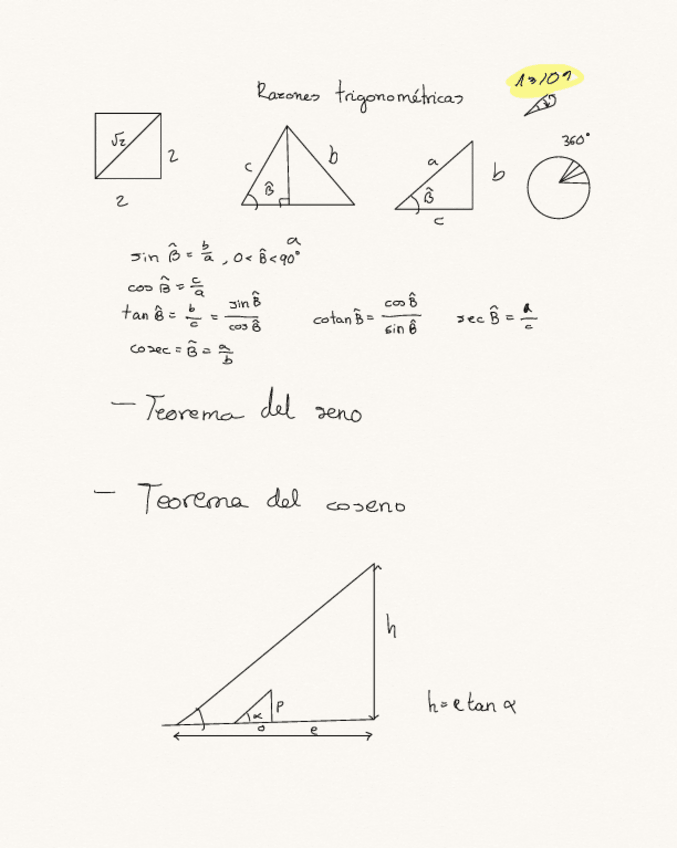 13/09
Razones trigonométricas
√2
2
2
c
b
B̂
a
a
b
B̂
c
360°
sin B̂ = b/a , 0 < B̂ < 90°
cos B̂ = c/a
tan B̂ = b/c = sin B̂/cos B̂
cotan B̂ = cos B̂/sin B̂
sec B̂ = a/c
cosec = B̂ = a/b
— Teorema del seno
— Teorema del coseno
h
P
α
o
e
h = e tan α